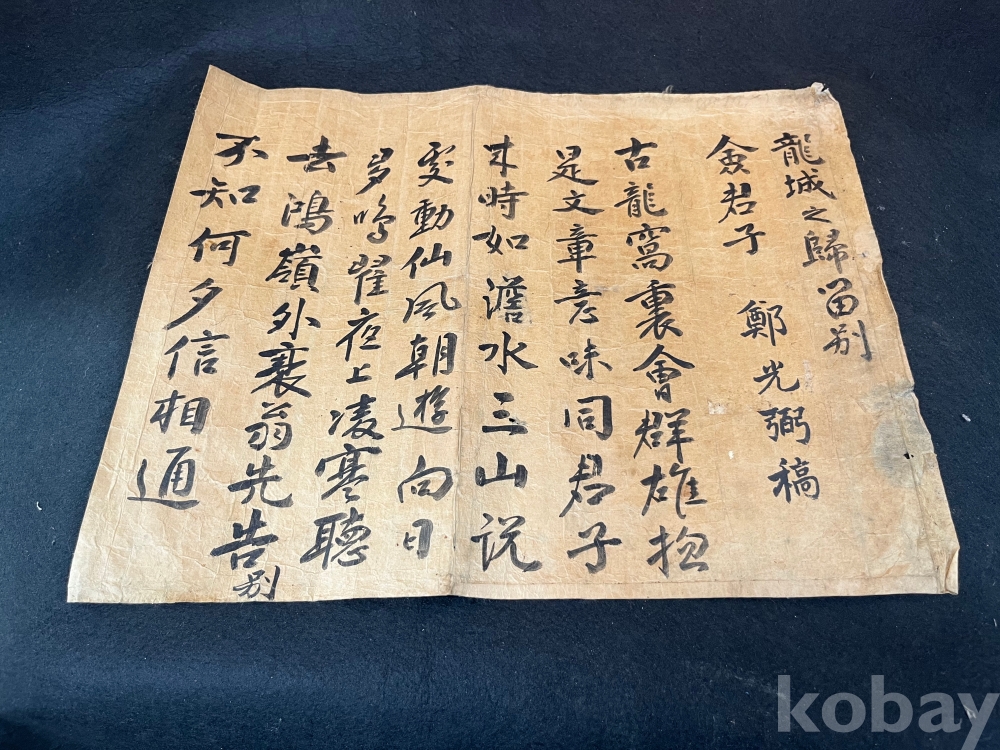 龍城之歸留別
僉君子 鄭光弼稿
古龍窩裏會群雄摠
是文章意味同君子
來時如澹水三山說
處動仙風朝遊向日
多鳴翟夜上凌寒聽
去鴻嶺外衰翁先告別
不知何夕信相通
kobay